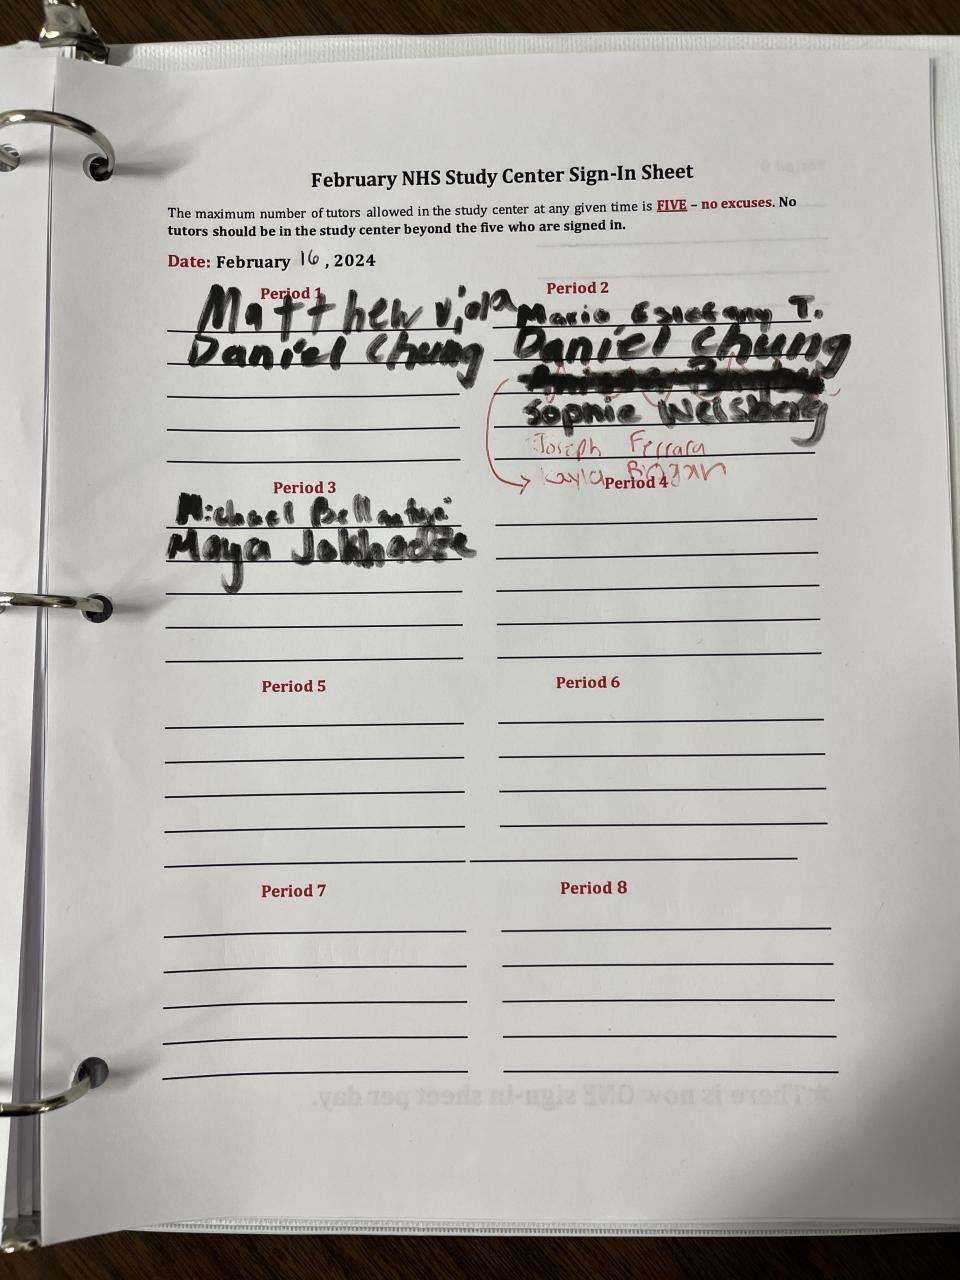 February NHS Study Center Sign-In Sheet
The maximum number of tutors allowed in the study center at any given time is FIVE – no excuses. No
tutors should be in the study center beyond the five who are signed in.
Date: February 16, 2024
Period 1
Matthew Viola
Daniel Chung
Period 2
Maria Estefany T.
Daniel Chung
Sophie Weisberg
Joseph Ferrara
Kayla
Period 3
Michael
Maya Jokhadze
Period 4
Period 5
Period 6
Period 7
Period 8
*There is now ONE sign-in sheet per day.